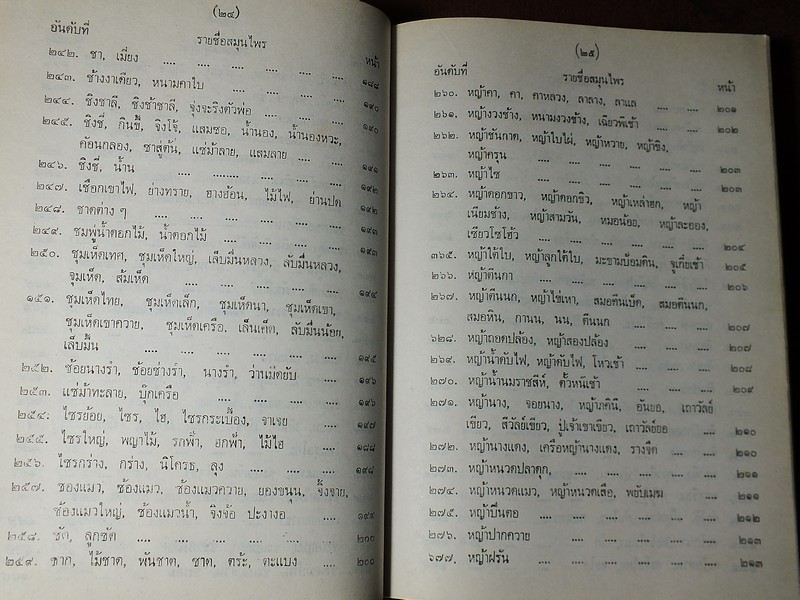 (๒๔)
อันดับที่ รายชื่อสมุนไพร หน้า
๒๔๒. ชา, เมี่ยง .... .... .... .... .... .... ๑๘๘
๒๔๓. ช้างงาเดียว, หนามคาใบ .... .... .... .... ๑๙๐
๒๔๔. ชิงชาลี, ชิงช้าชาลี, จุ่งจะริงตัวพ่อ .... .... .... ๑๙๐
๒๔๕. ชิงชี่, กินขี้, จิงโจ้, แสมซอ, น้ำนอง, น้ำนองหวะ,
ค้อนกลอง, ชาสู่ต้น, แซ่ม้าลาย, แสมลาย .... .... ๑๙๑
๒๔๖. ชิงชี่, น้ำน .... .......... .... .... .... ๑๙๒
๒๔๗. เชือกเขาไฟ, ย่างทราย, ฮางฮ้อน, ไม้ไฟ, ย่านปด ๑๙๒
๒๔๘. ชาดต่าง ๆ .... .... .... .... .... ๑๙๓
๒๔๙. ชมพู่น้ำดอกไม้, น้ำดอกไม้ .... .... .... ๑๙๓
๒๕๐. ชุมเห็ดเทศ, ชุมเห็ดใหญ่, เล็บมื่นหลวง, ลับมื่นหลวง,
จุมเห็ด, ส้มเห็ด .... .... .... .... .... ๑๙๔
๑๕๑. ชุมเห็ดไทย, ชุมเห็ดเล็ก, ชุมเห็ดนา, ชุมเห็ดเขา,
ชุมเห็ดเขาควาย, ชุมเห็ดเครือ, เล็นเค็ด, ลับมื่นน้อย,
เล็บมื่น .... .... .... .... .... .... ๑๙๕
๒๕๒. ช้อยนางรำ, ช้อยช่างรำ, นางรำ, ว่านมีดยับ .... ๑๙๖
๒๕๓. แซ่ม้าทะลาย, บุ๊กเครือ .... .... .... .... ๑๙๖
๒๕๔. ไซรย้อย, ไซร, ไฮ, ไซรกระเบื้อง, จาเจย .... ๑๙๗
๒๕๕. ไซรใหญ่, พญาไม้, รกฟ้า, ฮกฟ้า, ไม้ไฮ .... ๑๙๘
๒๕๖. ไซรกร่าง, กร่าง, นิโครธ, ลุง .... .... .... ๑๙๘
๒๕๗. ซองแมว, ซ้องแมว, ซ้องแมวควาย, ยองขนุน, จิ้งจาย,
ซ้องแมวใหญ่, ซ้องแมวน้ำ, จิงจ้อ ปะงางอ .... ๑๙๙
๒๕๘. ซัด, ลูกซัด .... .... .... .... .... ๒๐๐
๒๕๙. ซาก, ไม้ซาด, พันซาด, ซาด, ตร๊ะ, ตะแบง .... ๒๐๐
(๒๕)
อันดับที่ รายชื่อสมุนไพร หน้า
๒๖๐. หญ้าคา, คา, คาหลวง, ลาลาง, ลาแล .... .... ๒๐๑
๒๖๑. หญ้างวงช้าง, หนามงวงช้าง, เฉียวพี่เช้า .... .... ๒๐๒
๒๖๒. หญ้าชันกาด, หญ้าใบไผ่, หญ้าหวาย, หญ้าขิง,
หญ้าครุน .... .... .... .... .... ๒๐๓
๒๖๓. หญ้าไซ .... .... .... .... .... .... ๒๐๓
๒๖๔. หญ้าดอกขาว, หญ้าดอกขิว, หญ้าเหล่าฮก, หญ้า
เนียมช้าง, หญ้าสามวัน, หมอน้อย, หญ้าละออง,
เซียวโซโฮ้ว .... .... .... .... .... ๒๐๔
๓๖๕. หญ้าใต้ใบ, หญ้าลูกใต้ใบ, มะขามป้อมดิน, จูเกี๋ยเช้า ๒๐๕
๒๖๖. หญ้าตีนกา .... .... .... .... .... ๒๐๖
๒๖๗. หญ้าตีนนก, หญ้าไข่เหา, สมอตีนเป็ด, สมอตีนนก,
สมอหิน, กานน, นน, ตีนนก .... .... .... ๒๐๗
๖๒๘. หญ้าถอดปล้อง, หญ้าสองปล้อง .... .... .... ๒๐๗
๒๖๙. หญ้าน้ำดับไฟ, หญ้าดับไฟ, โหวเช้า .... .... .... ๒๐๘
๒๗๐. หญ้าน้ำนมราชสีห์, ตั้วหนี่เช้า .... .... .... .... ๒๐๙
๒๗๑. หญ้านาง, จอยนาง, หญ้าภคินี, อันยอ, เถาวัลย์
เขียว, สีวัลย์เขียว, ปู่เจ้าเขาเขียว, เถาวัลย์ยอ .... ๒๑๐
๒๗๒. หญ้านางแดง, เครือหญ้านางแดง, รางจืด .... .... ๒๑๐
๒๗๓. หญ้าหนวดปลาดุก, .... .... .... .... .... ๒๑๑
๒๗๔. หญ้าหนวดแมว, หญ้าหนวดเสือ, พยับเมฆ .... ๒๑๑
๒๗๕. หญ้าปันตอ .... .... .... .... .... .... ๒๑๒
๒๗๖. หญ้าปากควาย .... .... .... .... .... ๒๑๓
๖๗๗. หญ้าฝรัน .... .... .... .... .... .... ๒๑๓